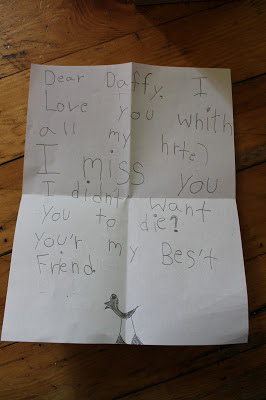 Dear Daffy. I
Love you whith
all my hrte)
I miss you
I didnt want
you to die?
you'r my Bes't
Friend